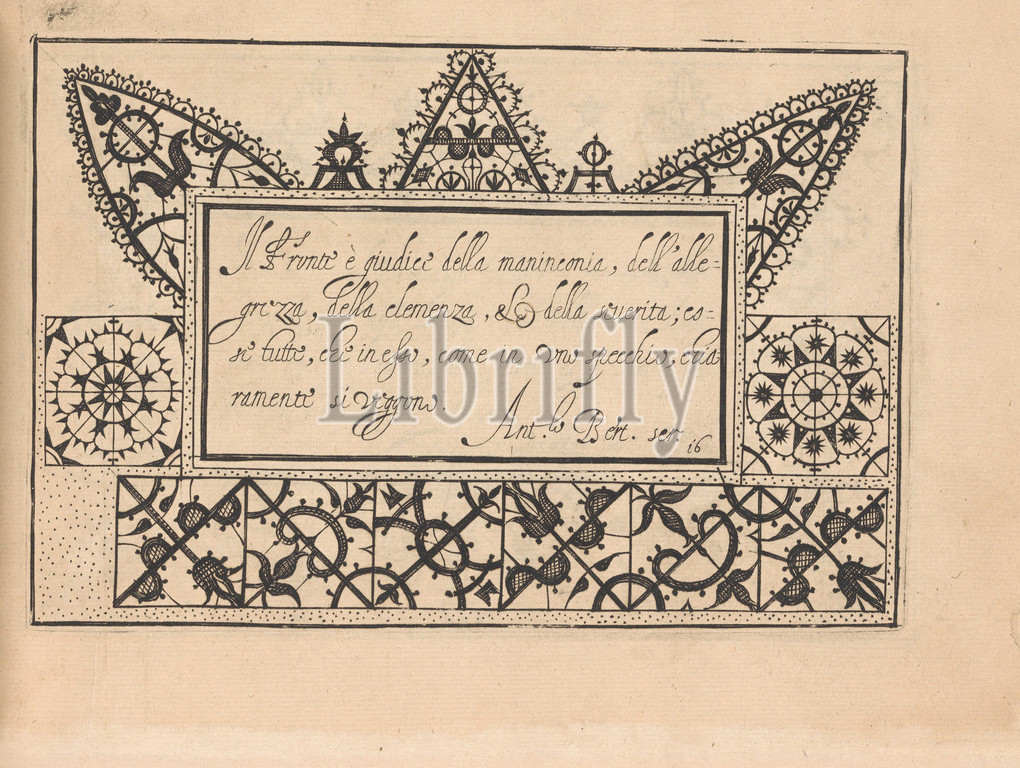 Il Fronte è giudice della maninconia, dell'alle-
grezza, della clemenza, & della seuerita; co-
se tutte, che in esso, come in vno specchio, chia
ramente si veggono.
Ant.º Bert. scr.
16
Librifly